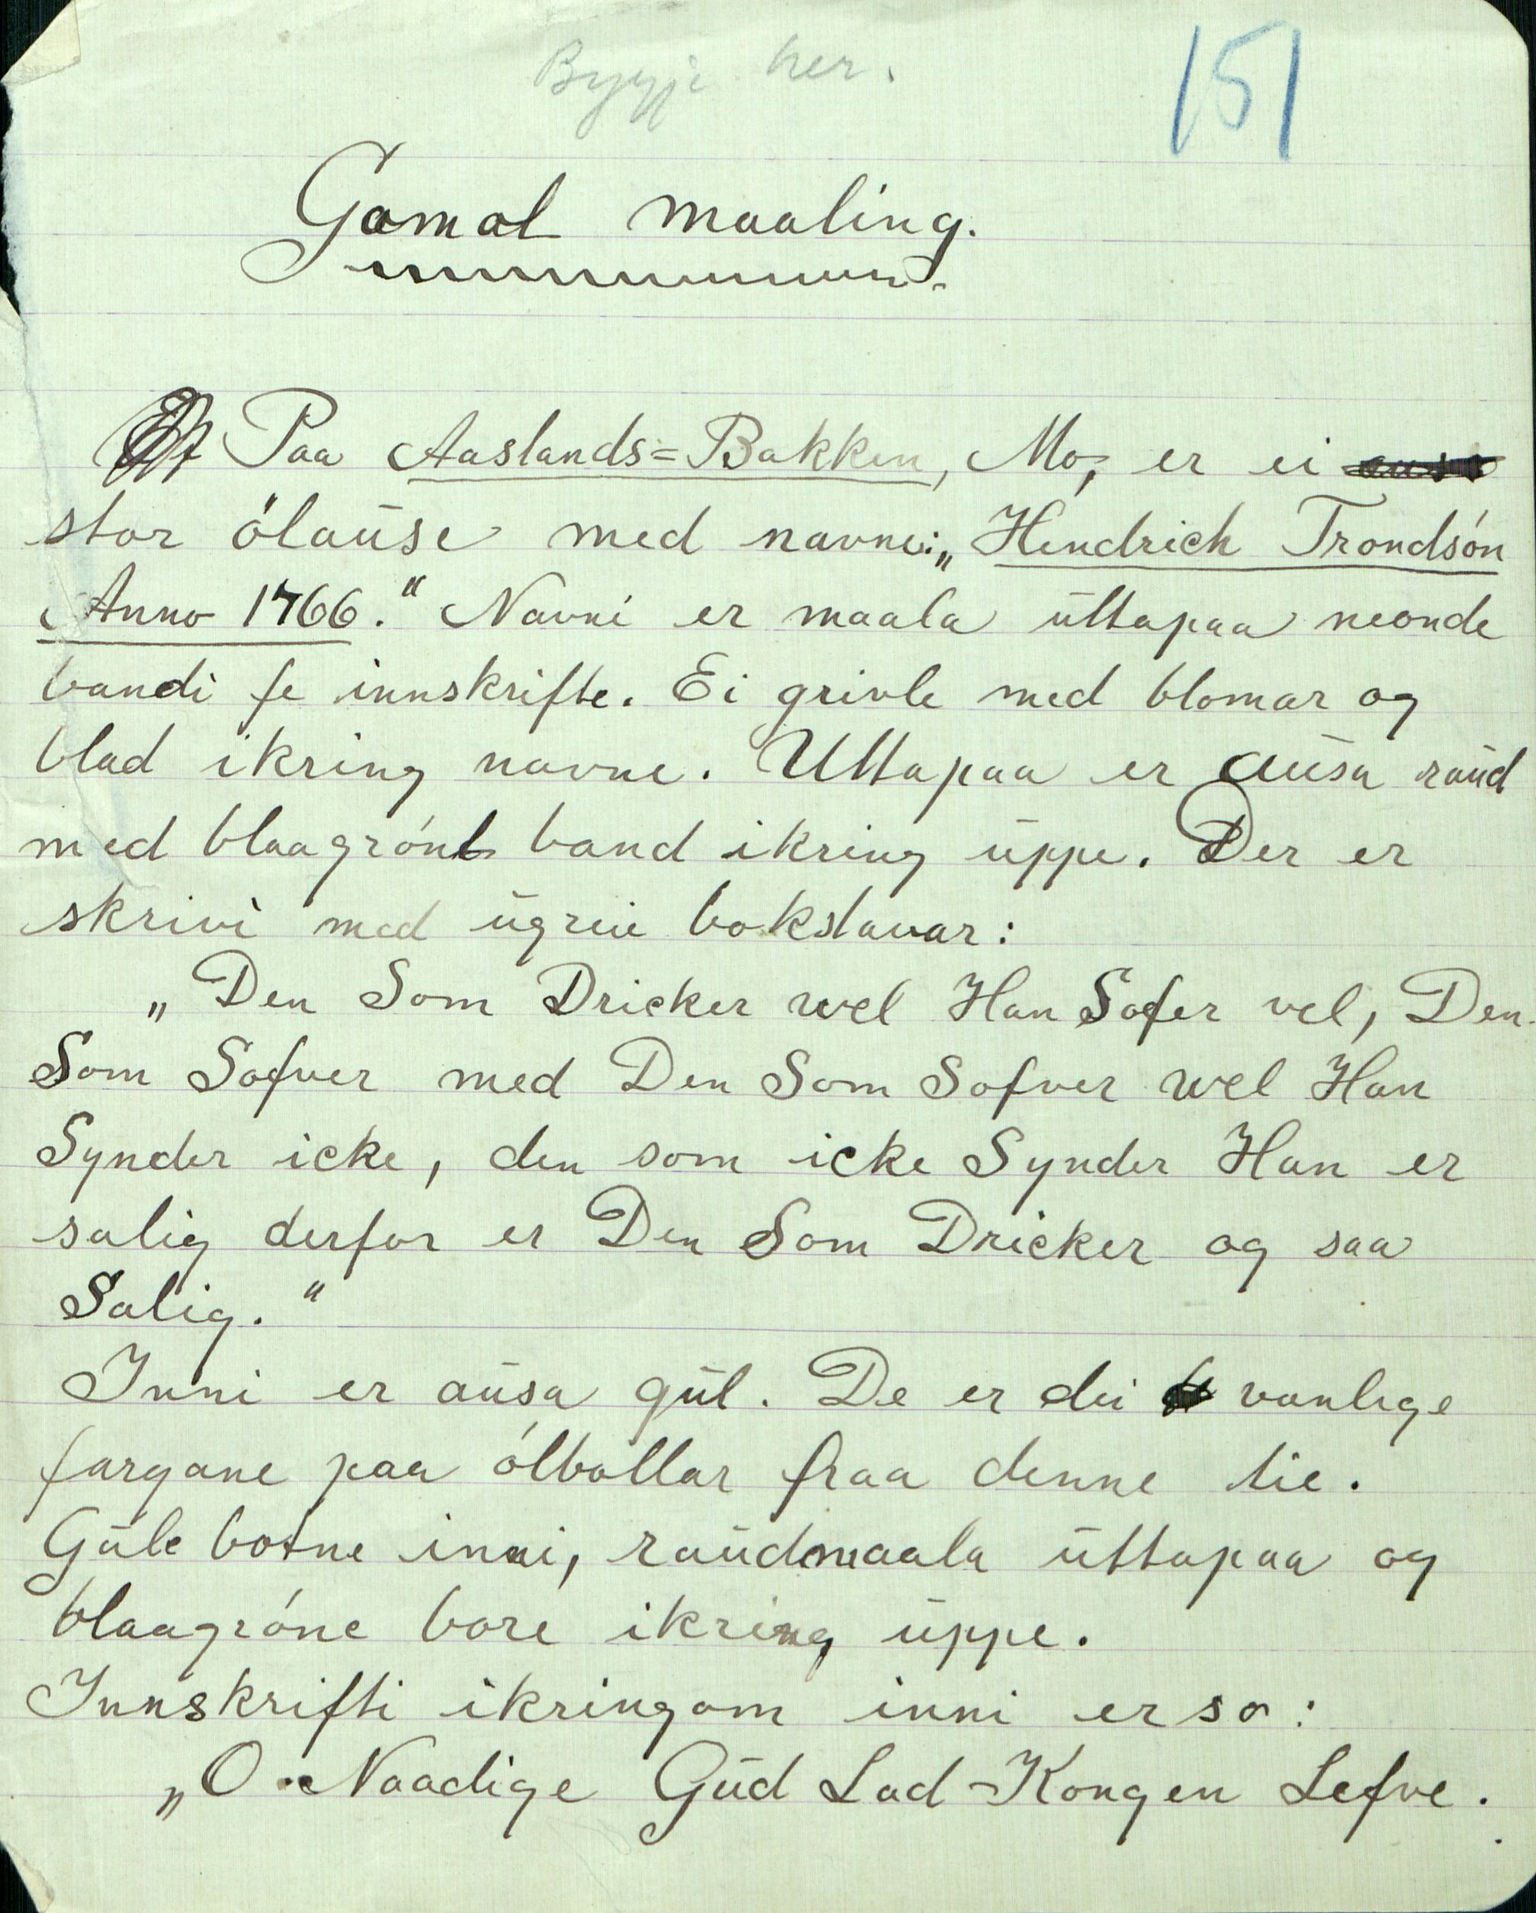 Byggje her.
151
Gamal maaling.
Paa Aaslands=Bakken, Mo, er ei
stor ólaūse med navne: „Hendrich Trondsón
Anno 1766.“ Navni er maala ūttapaa neonde
bandi fe innskrifte. Ei grivle med blomar og
blad ikring navne. Uttapaa er aūsa raūd
med blaagrónt band ikring ūppe. Der er
skrivi med ūgreie bokstavar:
„Den Som Dricker wel Han Sofer vel, Den
Som Sofver med Den Som Sofver wel Han
Synder icke, den som icke Synder Han er
salig derfor er Den Som Dricker og saa
Salig.“
Inni er aūsa gūl. De er dei vanlege
fargane paa ólbollar fraa denne tie.
Gūle botne inni, raūdmaala ūttapaa og
blaagróne bore ikring ūppe.
Innskrifti ikringom inni er so:
„O Naadige Gūd Lad Kongen Lefve.